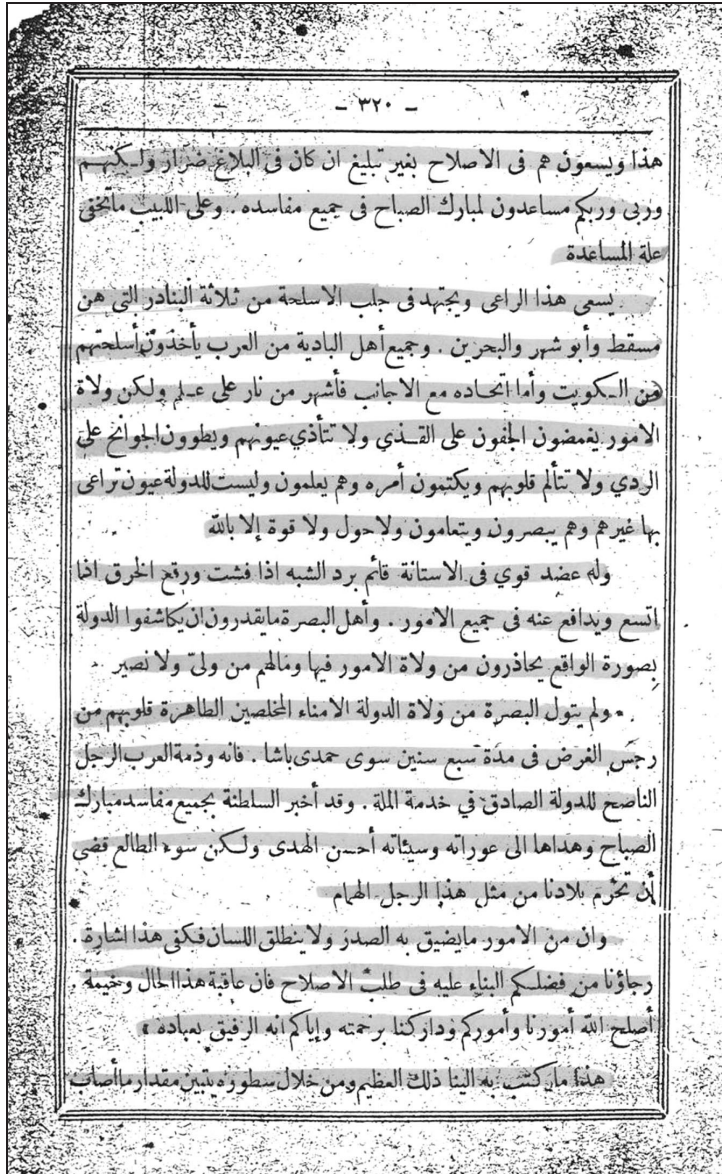 - ٣٢٠ -
هذا ويسعون هم فى الاصلاح بغير تبليغ ان كان فى البلاغ ضرار ولكنهم
وربى وربكم مساعدون لمبارك الصباح فى جميع مفاسده . وعلى اللبيب ماتخفى
علة المساعدة
يسعى هذا الراعى ويجتهد فى جلب الاسلحة من ثلاثة البنادر التى هن
مسقط وأبو شهر والبحرين . وجميع أهل البادية من العرب يأخذون أسلحتهم
من الكويت وأما اتحاده مع الاجانب فأشهر من نار على علم ولكن ولاة
الامور يغمضون الجفون على القذي ولا تتأذي عيونهم ويطوون الجوانح على
الردي ولا تتألم قلوبهم ويكتمون أمره وهم يعلمون وليست للدولة عيون تراعى
بها غيرهم وهم يبصرون ويتعامون ولا حول ولا قوة إلا بالله
وله عضد قوي فى الاستانة قائم برد الشبه اذا فشت ورقع الخرق اذا
اتسع ويدافع عنه فى جميع الامور . وأهل البصرة مايقدرون ان يكاشفوا الدولة
بصورة الواقع يحاذرون من ولاة الامور فيها ومالهم من ولىّ ولا نصير
ولم يتول البصرة من ولاة الدولة الامناء المخلصين الطاهرة قلوبهم من
رجس الغرض فى مدة سبع سنين سوى حمدى باشا . فانه وذمة العرب الرجل
الناصح للدولة الصادق في خدمة الملة . وقد أخبر السلطنة بجميع مفاسد مبارك
الصباح وهداها الى عوراته وسيئاته أحسن الهدى ولكن سوء الطالع قضى
أن تحرم بلادنا من مثل هذا الرجل الهمام
وان من الامور مايضيق به الصدر ولا ينطلق اللسان فكفى هذا اشارة .
رجاؤنا من فضلكم البناء عليه فى طلب الاصلاح فان عاقبة هذا الحال وخيمة .
أصلح الله أمورنا وأموركم وداركنا برحمته وإياكم انه الرفيق بعباده
هذا ما كتب به الينا ذلك العظيم ومن خلال سطوره يتبين مقدار ما أصاب